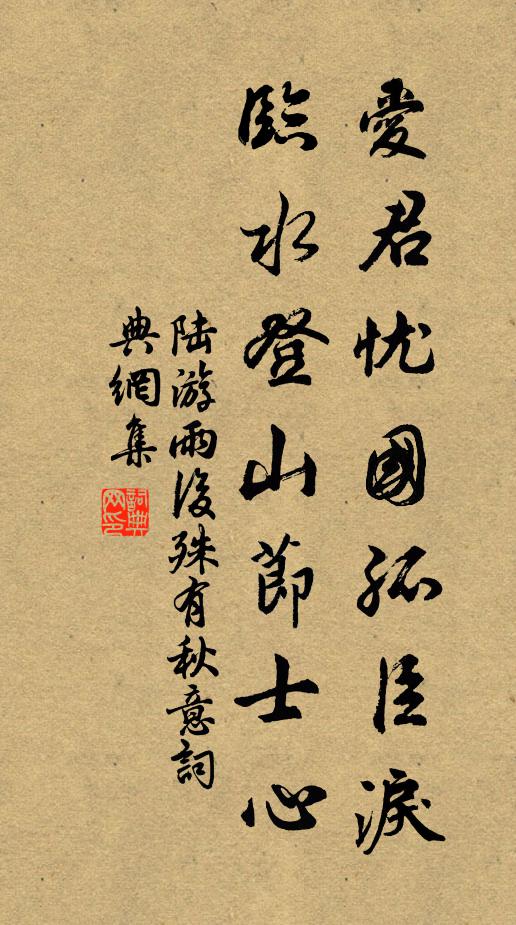 愛君忧國孤臣淚
臨水登山節士心
陆游雨後殊有秋意詞
典網集
詞典
网印